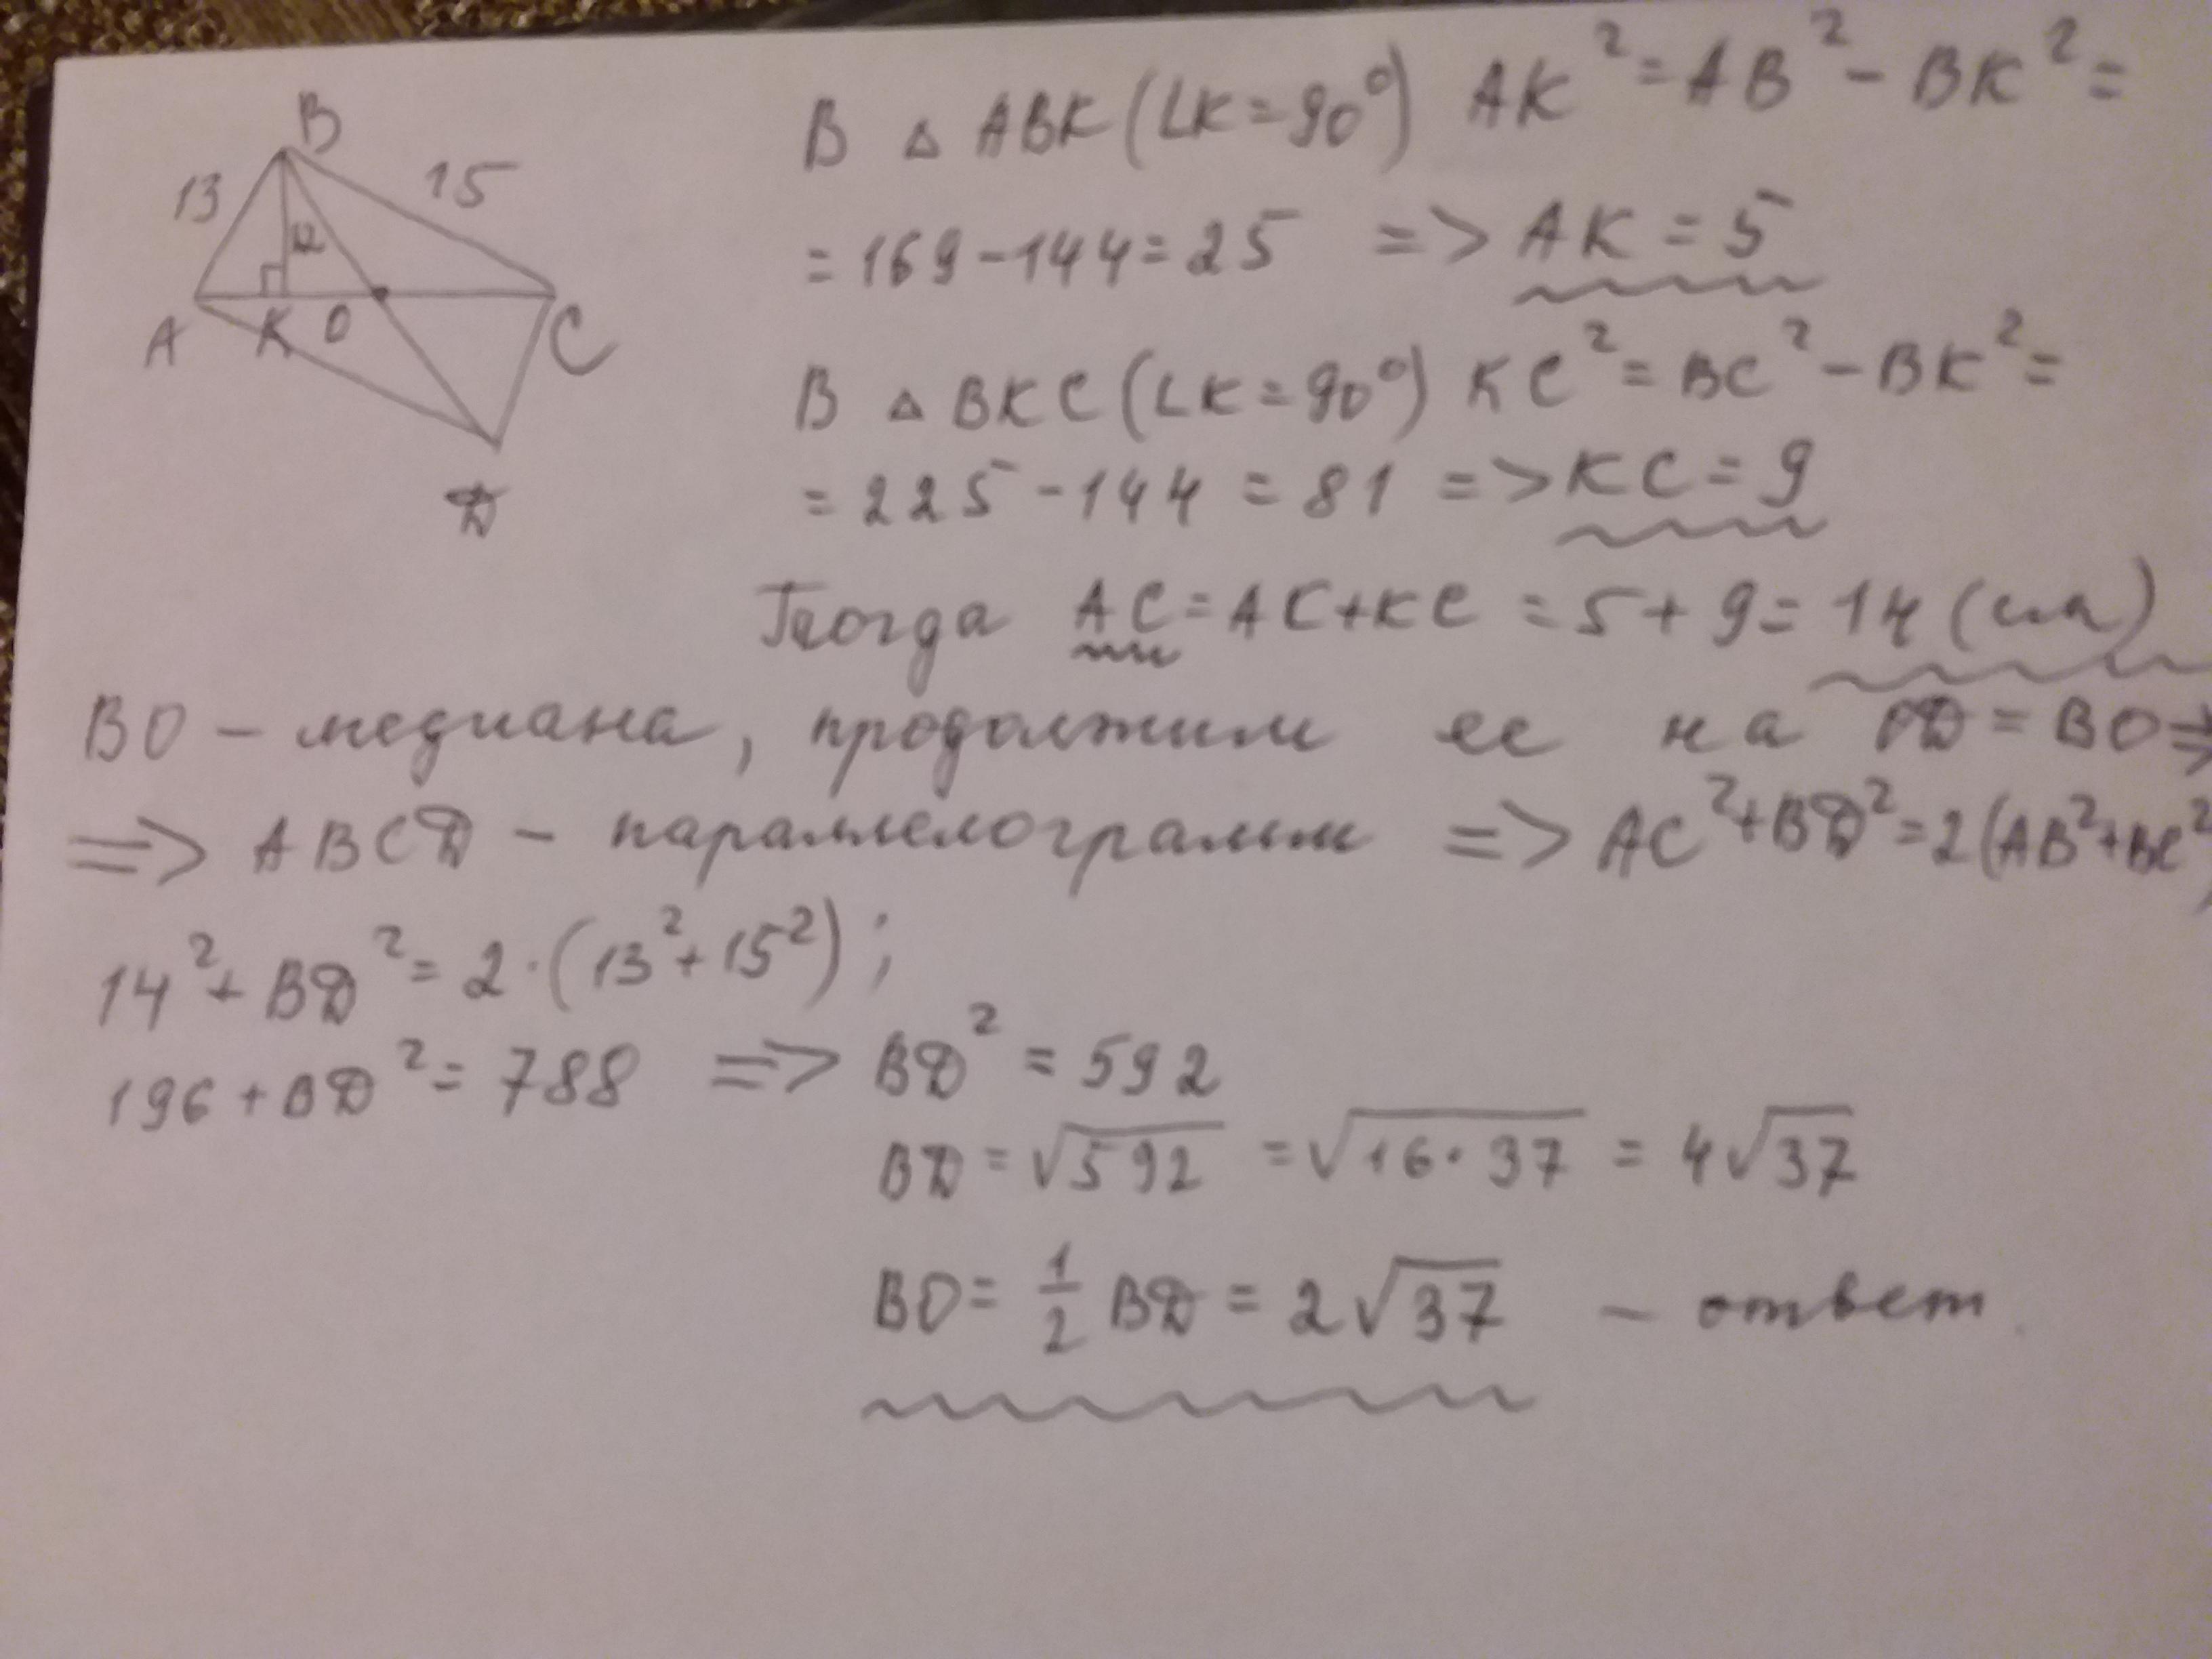 B
13
15
12
A
K
O
C
D
В △ ABK (∠K = 90°) AK² = AB² - BK² =
= 169 - 144 = 25 => AK = 5
В △ BKC (∠K = 90°) KC² = BC² - BK² =
= 225 - 144 = 81 => KC = 9
Тогда AC = AC + KC = 5 + 9 = 14 (см)
BO - медиана, продолжим ее на OD = BO =>
=> ABCD - параллелограмм => AC² + BD² = 2(AB² + BC²)
14² + BD² = 2 · (13² + 15²);
196 + BD² = 788 => BD² = 592
BD = √592 = √16·37 = 4√37
BO = 1/2 BD = 2√37 - ответ.